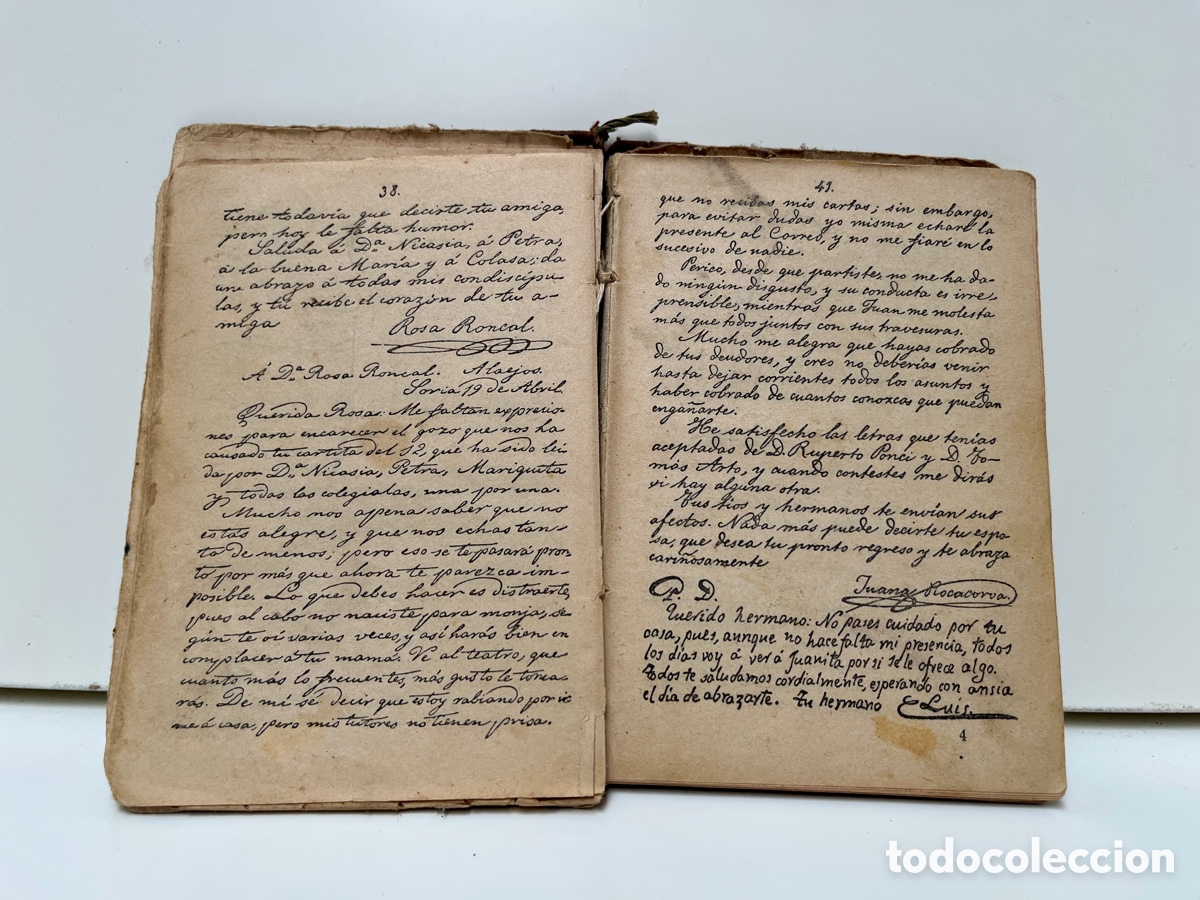 38.
tiene todavía que decirte tu amiga,
pero hoy le falta humor.
Saluda á D.ª Nicasia, á Petra,
á la buena María y á Colasa; da
un abrazo á todas mis condiscípu-
las, y tú recibe el corazón de tu a-
miga
Rosa Roncal.
Á D.ª Rosa Roncal. Alaejos.
Soria 19 de Abril.
Querida Rosa: Me faltan expresio-
nes para encarecer el gozo que nos ha
causado tu cartita del 12, que ha sido leí
da por D.ª Nicasia, Petra, Mariquita
y todas las colegialas, una por una.
Mucho nos apena saber que no
estás alegre, y que nos echas tan-
to de menos; pero eso se te pasará pron
to por más que ahora te parezca im-
posible. Lo que debes hacer es distraerte,
pues al cabo no naciste para monja, se-
gún te oí varias veces, y así harás bien en
complacer á tu mamá. Ve al teatro, que
cuanto más lo frecuentes, más gusto le toma-
rás. De mí sé decir que estoy rabiando por ir
me á casa, pero mis tutores no tienen prisa.
49.
que no recibas mis cartas; sin embargo,
para evitar dudas yo misma echaré la
presente al Correo, y no me fiaré en lo
sucesivo de nadie.
Perico, desde que partiste, no me ha da-
do ningún disgusto, y su conducta es irre-
prensible, mientras que Juan me molesta
más que todos juntos con sus travesuras.
Mucho me alegra que hayas cobrado
de tus deudores, y creo no deberías venir
hasta dejar corrientes todos los asuntos y
haber cobrado de cuantos conozcas que puedan
engañarte.
He satisfecho las letras que tenías
aceptadas de D. Ruperto Ponci y D. To-
más Arto, y cuando contestes me dirás
si hay alguna otra.
Tus tíos y hermanos te envían sus
afectos. Nada más puede decirte tu espo-
sa, que desea tu pronto regreso y te abraza
cariñosamente
Juana Piscacorva.
P. D.
Querido hermano: No pases cuidado por tu
casa, pues, aunque no hace falta mi presencia, todos
los días voy á ver á Juanita por si se le ofrece algo.
Todos te saludamos cordialmente, esperando con ansia
el día de abrazarte. Tu hermano Luis.
4
todocoleccion